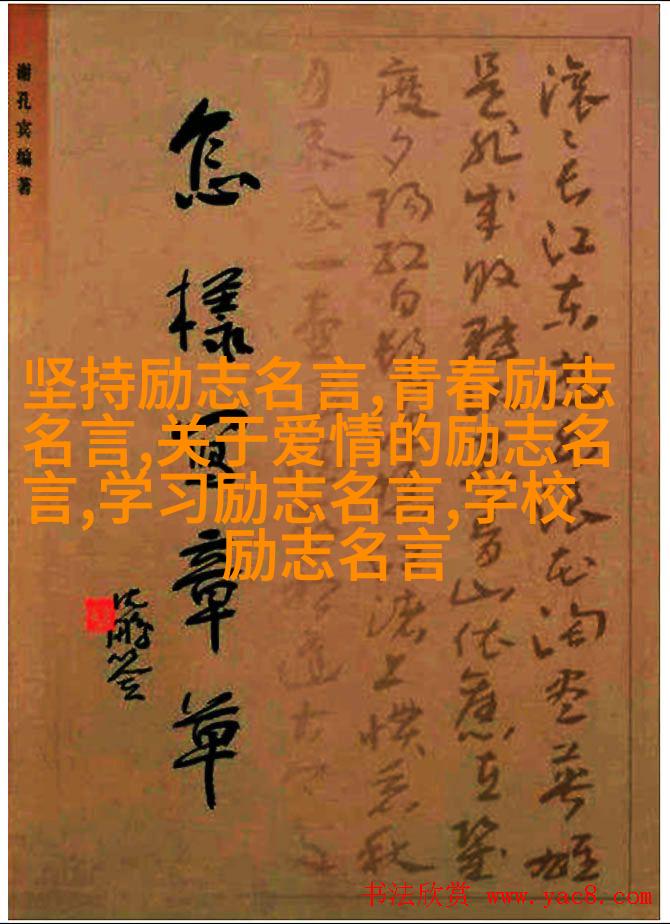 滚〻长江东 浪花淘尽英雄
是非成败转 青山依旧在几
度夕阳红白发 渚上惯看秋
月春风一壶 逢古今多
怎樣 章草
沈鹏签
谢孔宾编著
坚持励志名言,青春励志
名言,关于爱情的励志名
言,学习励志名言,学校
励志名言
书法欣赏 www.yac8.com